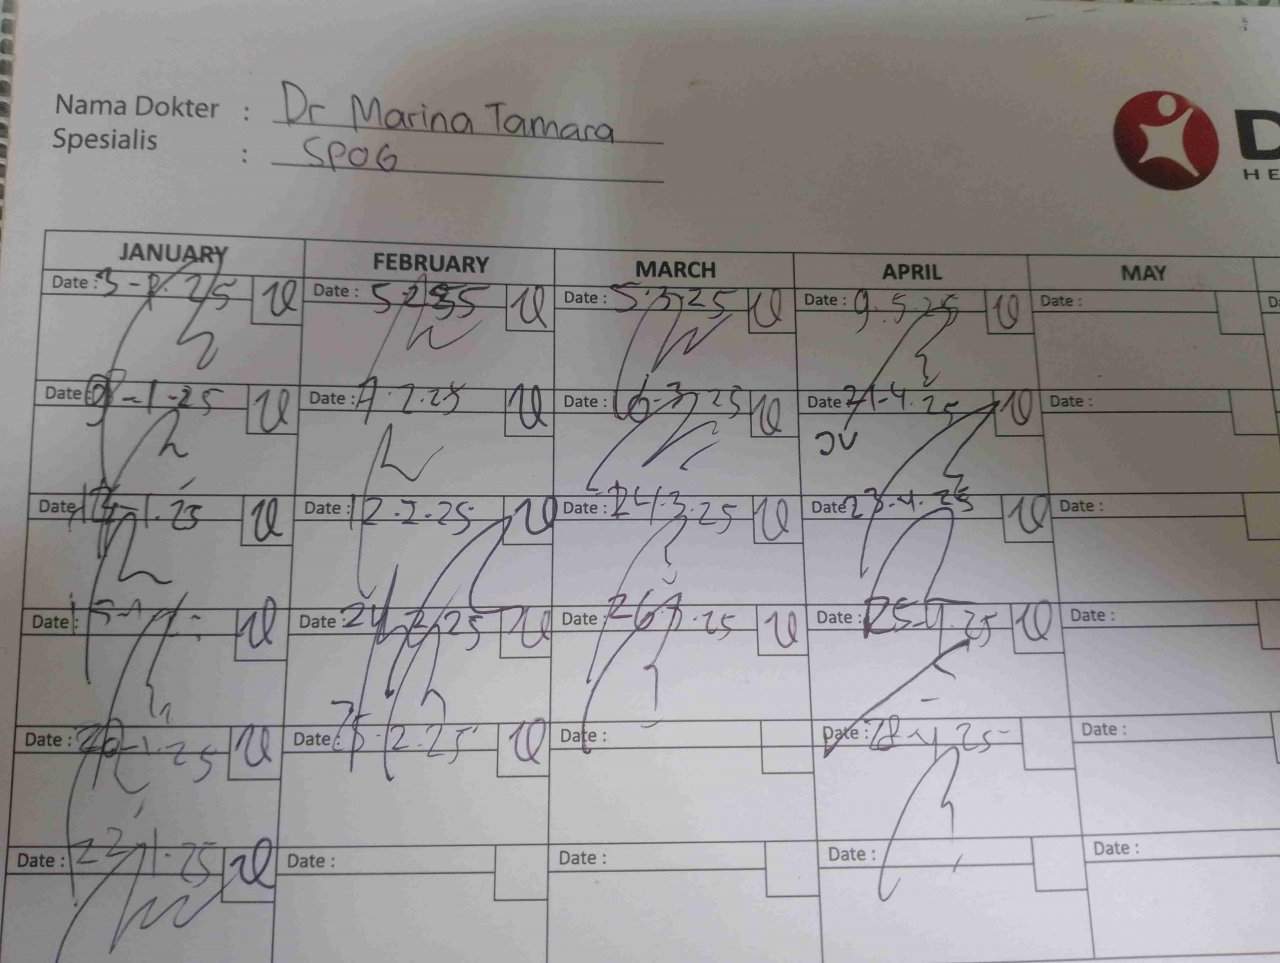 Nama Dokter : Dr Marina Tamara
Spesialis : SPOG
D
HE
JANUARY FEBRUARY MARCH APRIL MAY
Date : 3-1-25 Date : 5.2.25 Date : 5.3.25 Date : 9.5.25 Date : D
Date : 9-1-25 Date : 7.2.25 Date : 6-3.25 Date 21-4.25 Date :
JV
Date 13-1.25 Date : 12-2-25 Date : 24.3.25 Date 23-4-25 Date :
Date : 15-1 Date : 24.2.25 Date : 26.3.25 Date : 25-4.25 Date :
Date : 20-1.25 Date : 25-2.25 Date : Date : 28-4.25 Date :
Date : 23.1.25 Date : Date : Date : Date :